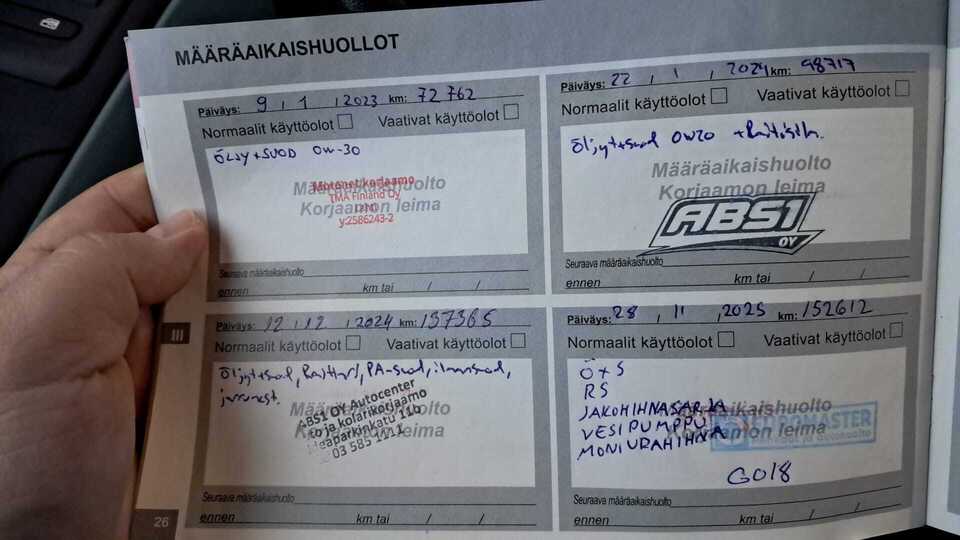 MÄÄRÄAIKAISHUOLLOT
Päiväys: 9 / 1 , 2023 km: 72 762
Normaalit käyttöolot Vaativat käyttöolot
ÖLJY + SUOD 0W-30
Määräaikaishuolto
Korjaamon leima
Motonet korjaamo
TMA Finland Oy
y:2586243-2
Seuraava määräaikaishuolto
ennen km tai / /
Päiväys: 22 , 1 , 2024 km: 98717
Normaalit käyttöolot Vaativat käyttöolot
Öljyt+suod 0W20
Määräaikaishuolto
Korjaamon leima
ABS1
OY
Seuraava määräaikaishuolto
ennen km tai / /
III
Päiväys: 12 , 12 , 2024 km: 137365
Normaalit käyttöolot Vaativat käyttöolot
Öljyt+suod, Raitisil, PA-suod, ilmansuod,
jarrunest.
Määräaikaishuolto
Korjaamon leima
ABS1 OY Autocenter
to ja kolarikorjaamo
03 585 1111
Seuraava määräaikaishuolto
ennen km tai / /
Päiväys: 28 , 11 , 2025 km: 152612
Normaalit käyttöolot Vaativat käyttöolot
Ö + S
RS
JAKOHIHNASARJA
VESIPUMPPU
MONIURAHIHNA
Määräaikaishuolto
Korjaamon leima
GO18
Seuraava määräaikaishuolto
ennen km tai / /
26